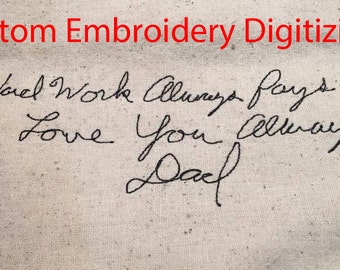 tom Embroidery Digitizi
Hard Work Always Pays
Love You Always
Dad